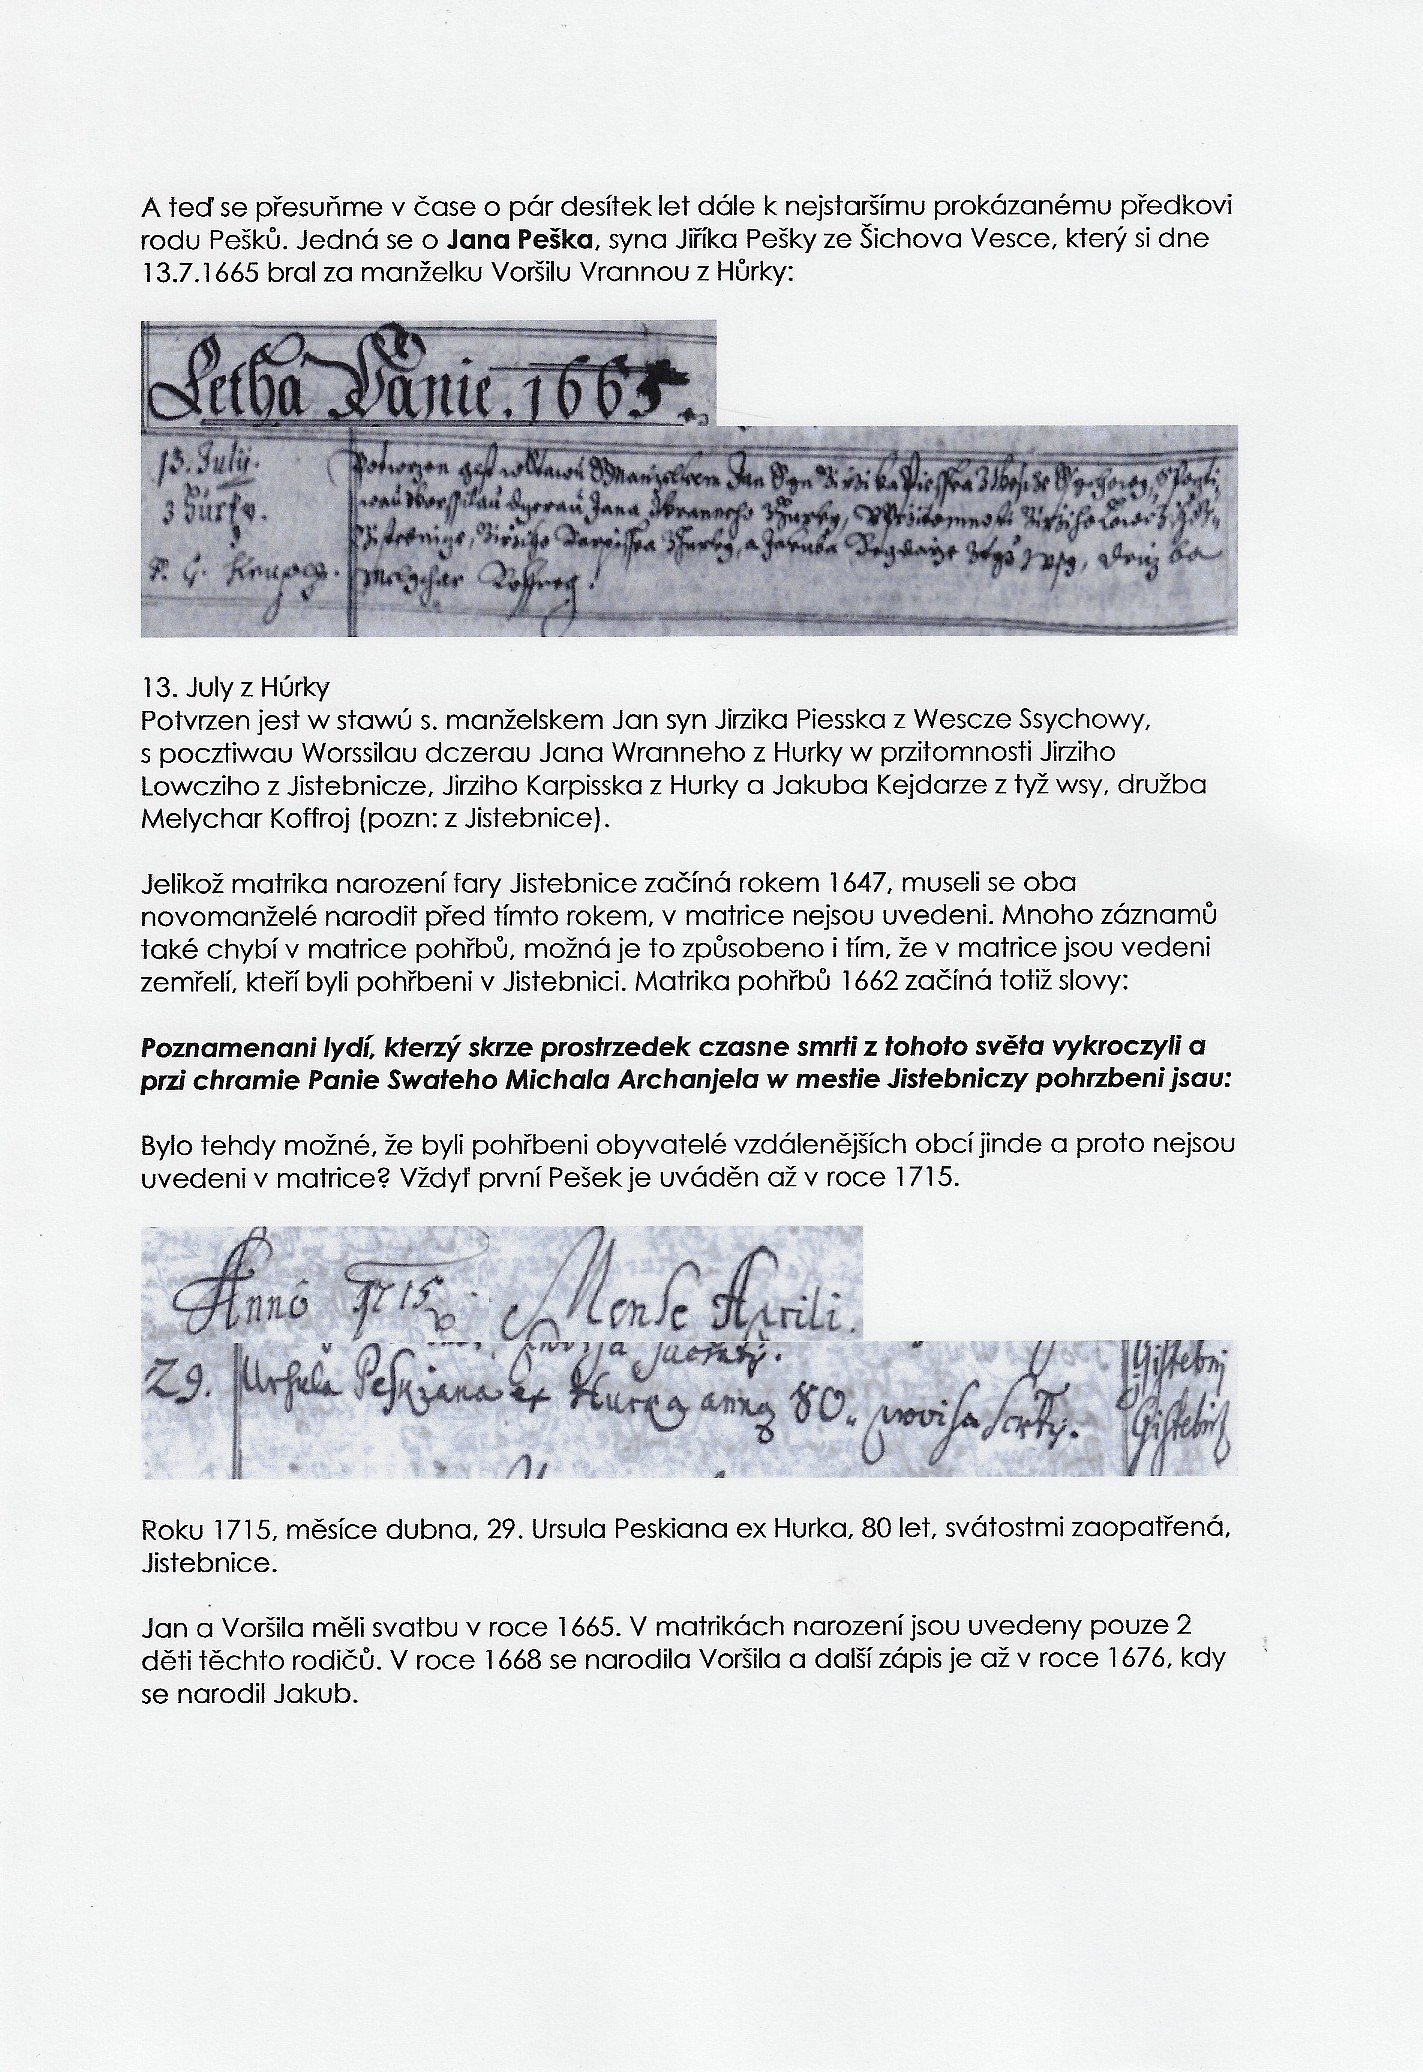 A teď se přesuňme v čase o pár desítek let dále k nejstaršímu prokázanému předkovi
rodu Pešků. Jedná se o Jana Peška, syna Jiříka Pešky ze Šichova Vesce, který si dne
13.7.1665 bral za manželku Voršilu Vrannou z Hůrky:
Letha Pánie. 1665.
13. July.
z Húrky.
Potwrzen gest w Stawu S Manzelskem Jan Syn Jirzika Piesska z
Melychar Koffroy.
13. July z Húrky
Potvrzen jest w stawú s. manželskem Jan syn Jirzika Piesska z Wescze Ssychowy,
s pocztiwau Worssilau dczerau Jana Wranneho z Hurky w przitomnosti Jirziho
Lowcziho z Jistebnicze, Jirziho Karpisska z Hurky a Jakuba Kejdarze z tyž wsy, družba
Melychar Koffroj (pozn: z Jistebnice).
Jelikož matrika narození fary Jistebnice začíná rokem 1647, museli se oba
novomanželé narodit před tímto rokem, v matrice nejsou uvedeni. Mnoho záznamů
také chybí v matrice pohřbů, možná je to způsobeno i tím, že v matrice jsou vedeni
zemřelí, kteří byli pohřbeni v Jistebnici. Matrika pohřbů 1662 začíná totiž slovy:
Poznamenani lydí, kterzý skrze prostrzedek czasne smrti z tohoto světa vykroczyli a
przi chramie Panie Swateho Michala Archanjela w mestie Jistebniczy pohrzbeni jsau:
Bylo tehdy možné, že byli pohřbeni obyvatelé vzdálenějších obcí jinde a proto nejsou
uvedeni v matrice? Vždyť první Pešek je uváděn až v roce 1715.
Anno 1715 Mense Aprili.
29. Ursula Peskiana ex Hurka anno 80. provisa Gistebni
Roku 1715, měsíce dubna, 29. Ursula Peskiana ex Hurka, 80 let, svátostmi zaopatřená,
Jistebnice.
Jan a Voršila měli svatbu v roce 1665. V matrikách narození jsou uvedeny pouze 2
děti těchto rodičů. V roce 1668 se narodila Voršila a další zápis je až v roce 1676, kdy
se narodil Jakub.